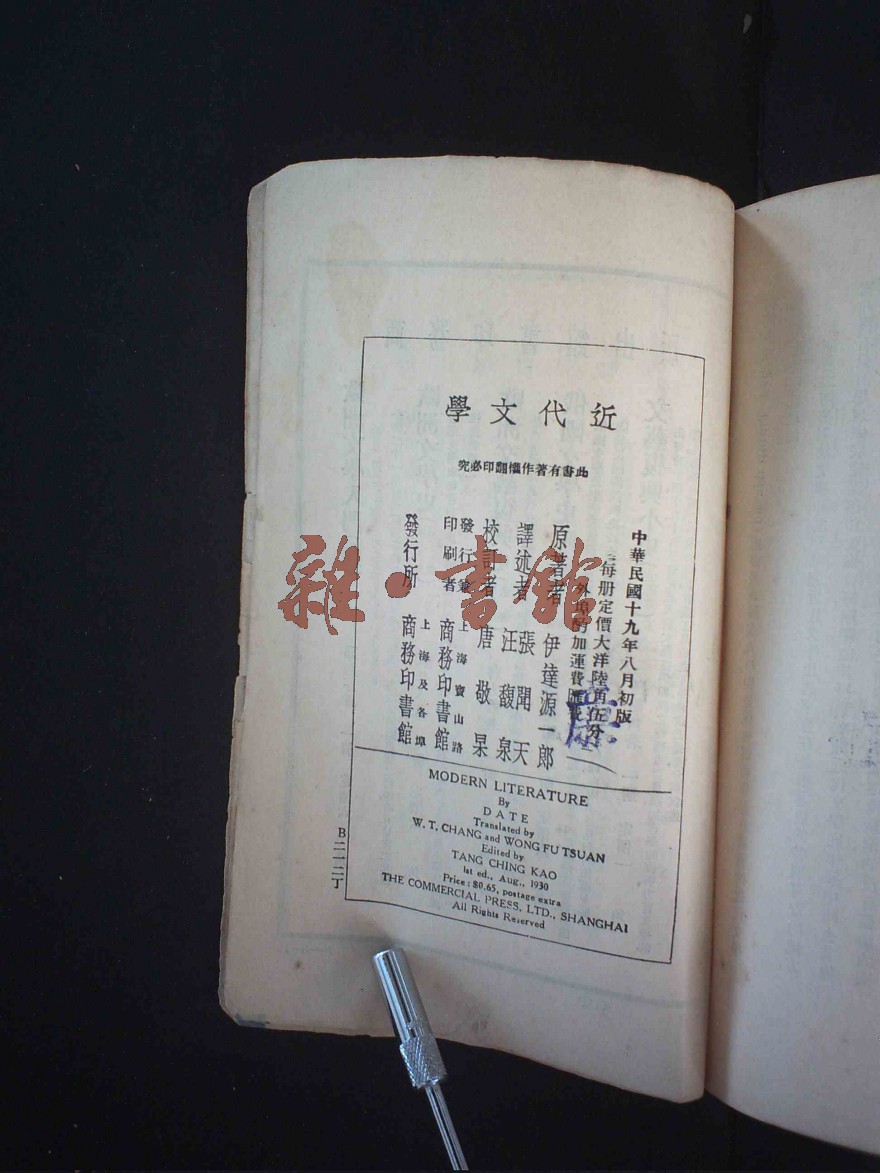 近代文學
此書有著作權翻印必究
中華民國十九年八月初版
每册定價大洋陸角伍分
外埠酌加運費匯費
原著者 伊達源一郎
譯述者 張聞天 汪馥泉
校訂者 唐敬杲
發行兼印刷者 上海寶山路 商務印書館
發行所 上海及各埠 商務印書館
MODERN LITERATURE
By
DATE
Translated by
W. T. CHANG and WONG FU TSUAN
Edited by
TANG CHING KAO
1st ed., Aug., 1930
Price: $0.65, postage extra
THE COMMERCIAL PRESS, LTD., SHANGHAI
All Rights Reserved
B二一二丁
雜·書館